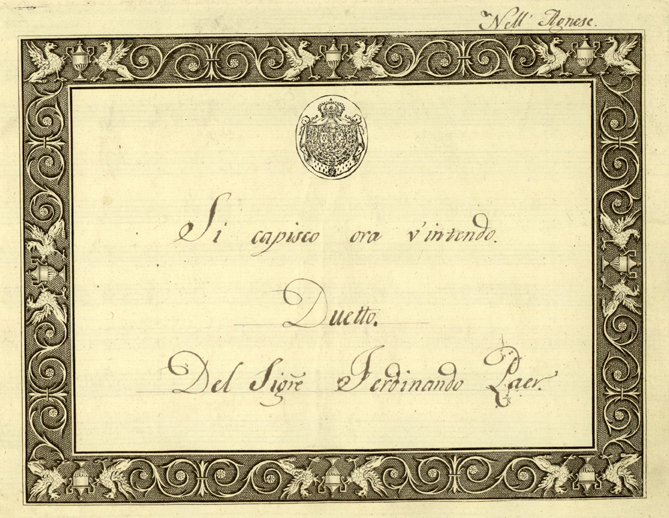 Nell' Agnese.
Si capisco ora v'intendo.
Duetto.
Del Sigre Ferdinando Paer.